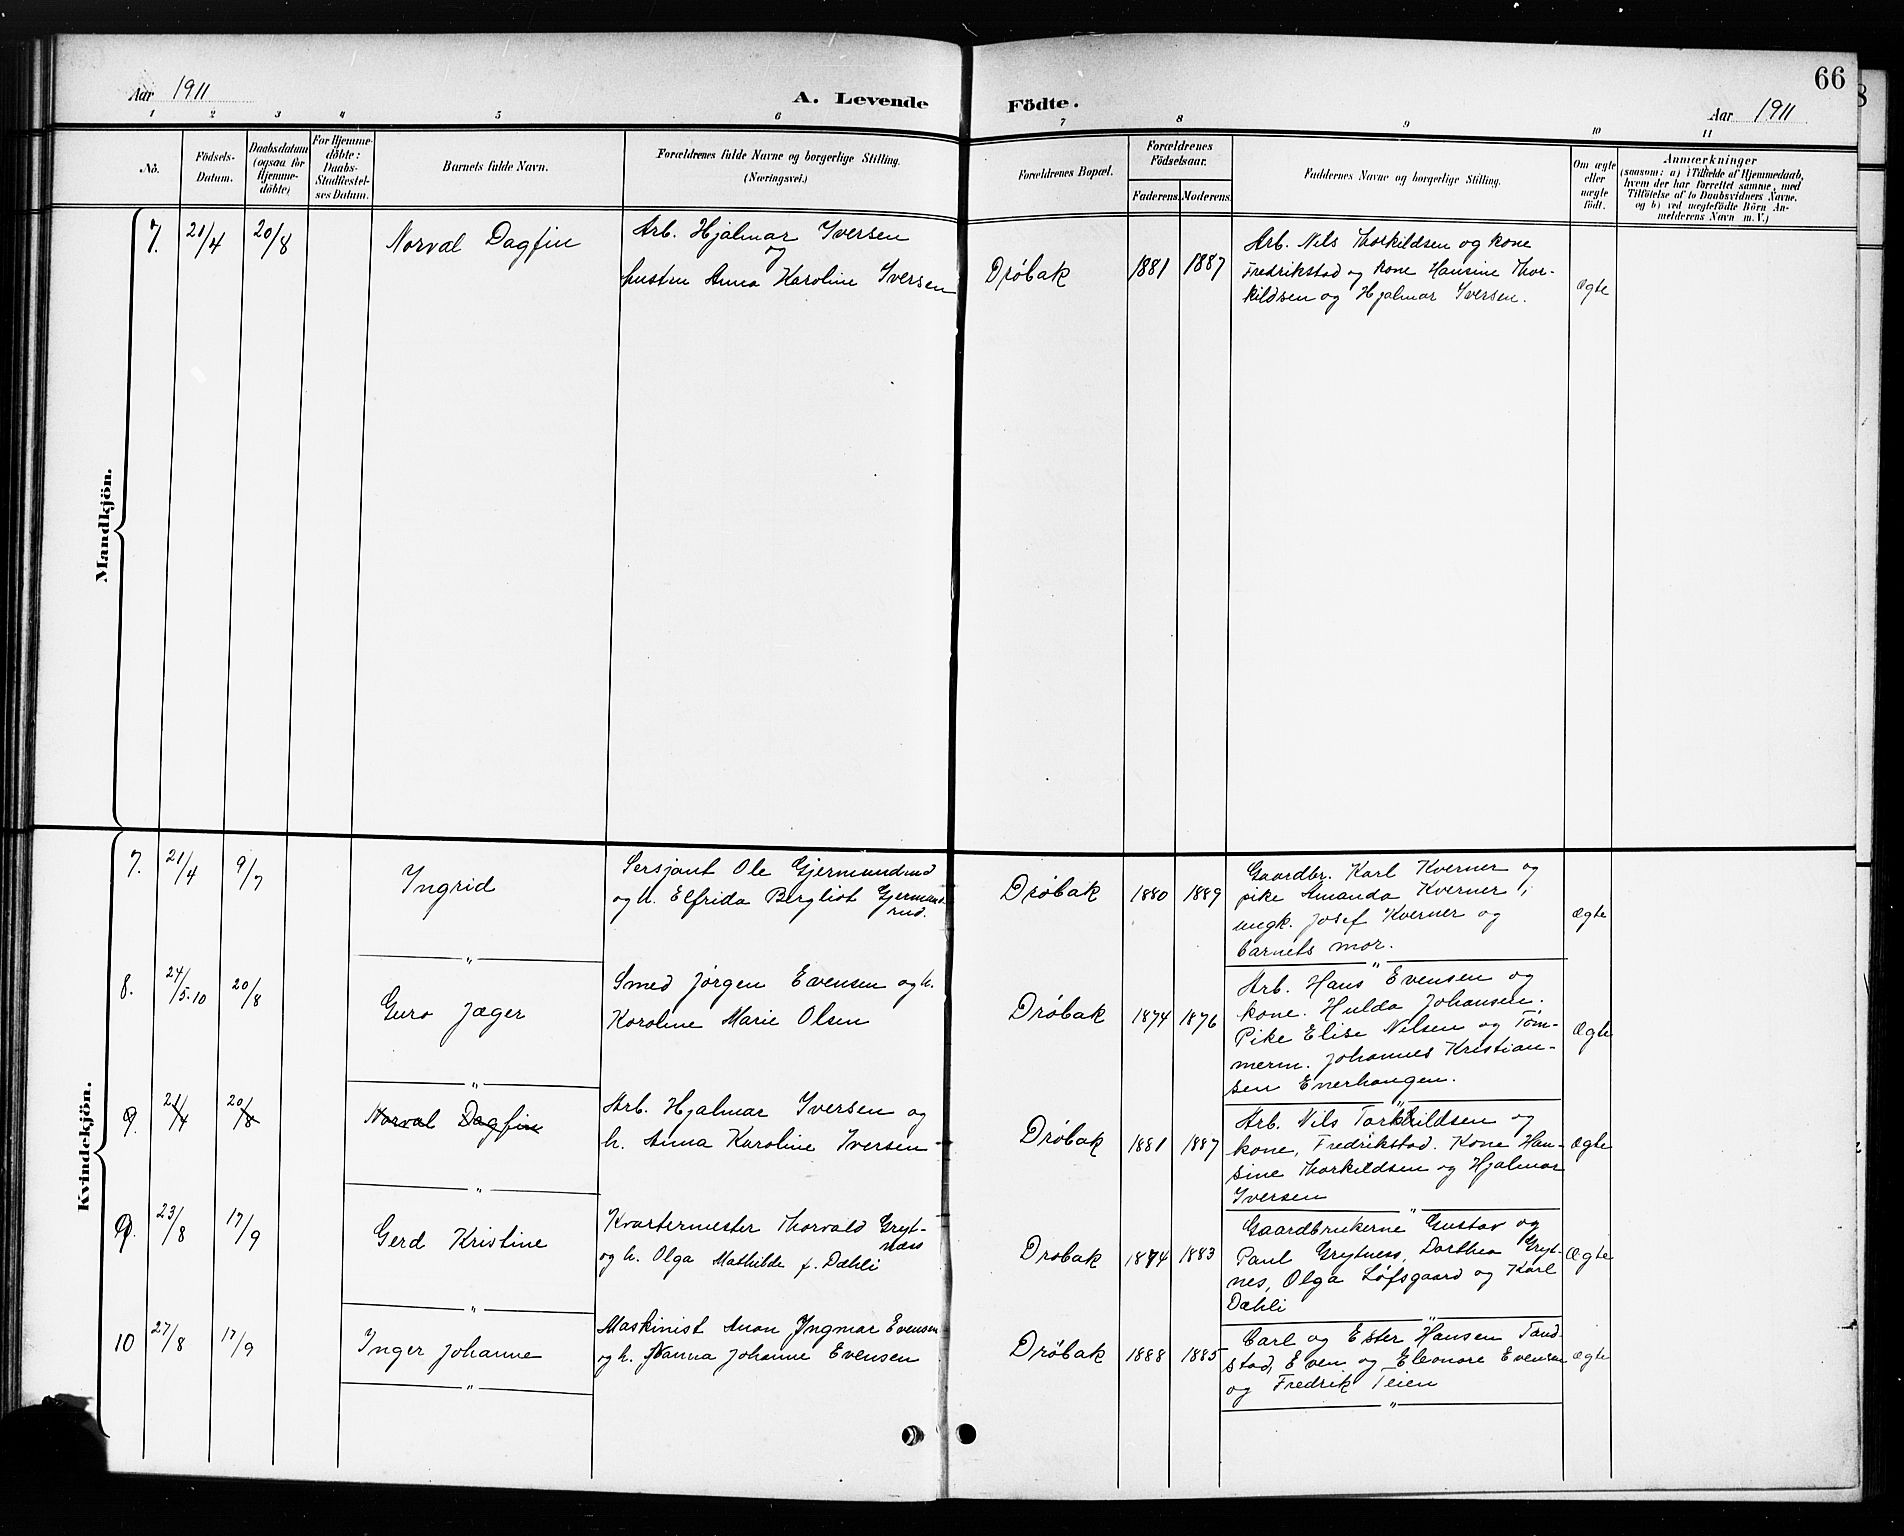 66
Aar 1911
A. Levende Födte.
Aar 1911
1 2 3 4 5 6 7 8 9 10 11
No.
Födsels-
Datum.
Daabsdatum
(ogsaa for
Hjemme-
döbte)
For Hjemme-
döbte:
Daabs-
Stadfæstel-
ses Datum.
Barnets fulde Navn.
Forældrenes fulde Navne og borgerlige Stilling.
(Næringsvei.)
Forældrenes Bopæl.
Forældrenes
Födselsaar.
Faderens. Moderens.
Faddernes Navne og borgerlige Stilling.
Om ægte
eller
uægte
født.
Anmærkninger
(saasom: a) i Tilfælde af Hjemmedaab,
hvem der har forrettet samme, med
Tilföielse af to Daabsvidners Navne,
og b) ved uægtefödte Börn An-
melderens Navn m. V.)
Mandkjön.
7. 21/4 20/8
Norval Dagfin
Arb. Hjalmar Iversen
og
hustru Anna Karoline Iversen
Drøbak 1881 1887
Arb. Nils Thorkildsen og kone
Fredrikstad og kone Hansine Thor-
kildsen og Hjalmar Iversen.
Ægte
Kvindekjön.
7. 21/4 9/7
Ingrid
Sersjant Ole Gjermundrud
og h. Elfrida Bergliot Gjermund-
rud.
Drøbak 1880 1889
Gaardbr. Karl Kverner og
pike Amanda Kverner,
ungk. Josef Kverner og
barnets mor.
Ægte
"
"
8. 24/5.10 20/8
Guro Jæger
Smed Jørgen Evensen og h.
Karoline Marie Olsen
Drøbak 1874 1876
Arb. Hans Evensen og
kone. Hulda Johansen.
Pike Elise Nilsen og Tøm-
merm. Johannes Kristian-
sen Enerhaugen.
Ægte
"
"
9. 21/4 20/8
Norval Dagfin
Arb. Hjalmar Iversen og
h. Anna Karoline Iversen
Drøbak 1881 1887
Arb. Nils Torkildsen og
kone, Fredrikstad. Kone Han-
sine Thorkildsen og Hjalmar
Iversen
Ægte
"
"
9. 23/8 17/9
Gerd Kristine
Kvartermester Thorvald Gryt-
næss
og h. Olga Mathilde f. Dæhli
Drøbak 1874 1883
Gaardbrukerne Gustav og
Paul Grytness, Dorthea Gryt-
nes, Olga Løfsgaard og Karl
Dæhli
Ægte
"
"
10 27/8 17/9
Inger Johanne
Maskinist Anon Ingmar Evensen
og h. Nanna Johanne Evensen
Drøbak 1888 1885
Carl og Ester Hansen Tand-
stad, Even og Eleonore Evensen
og Fredrik Teien
Ægte
"
"